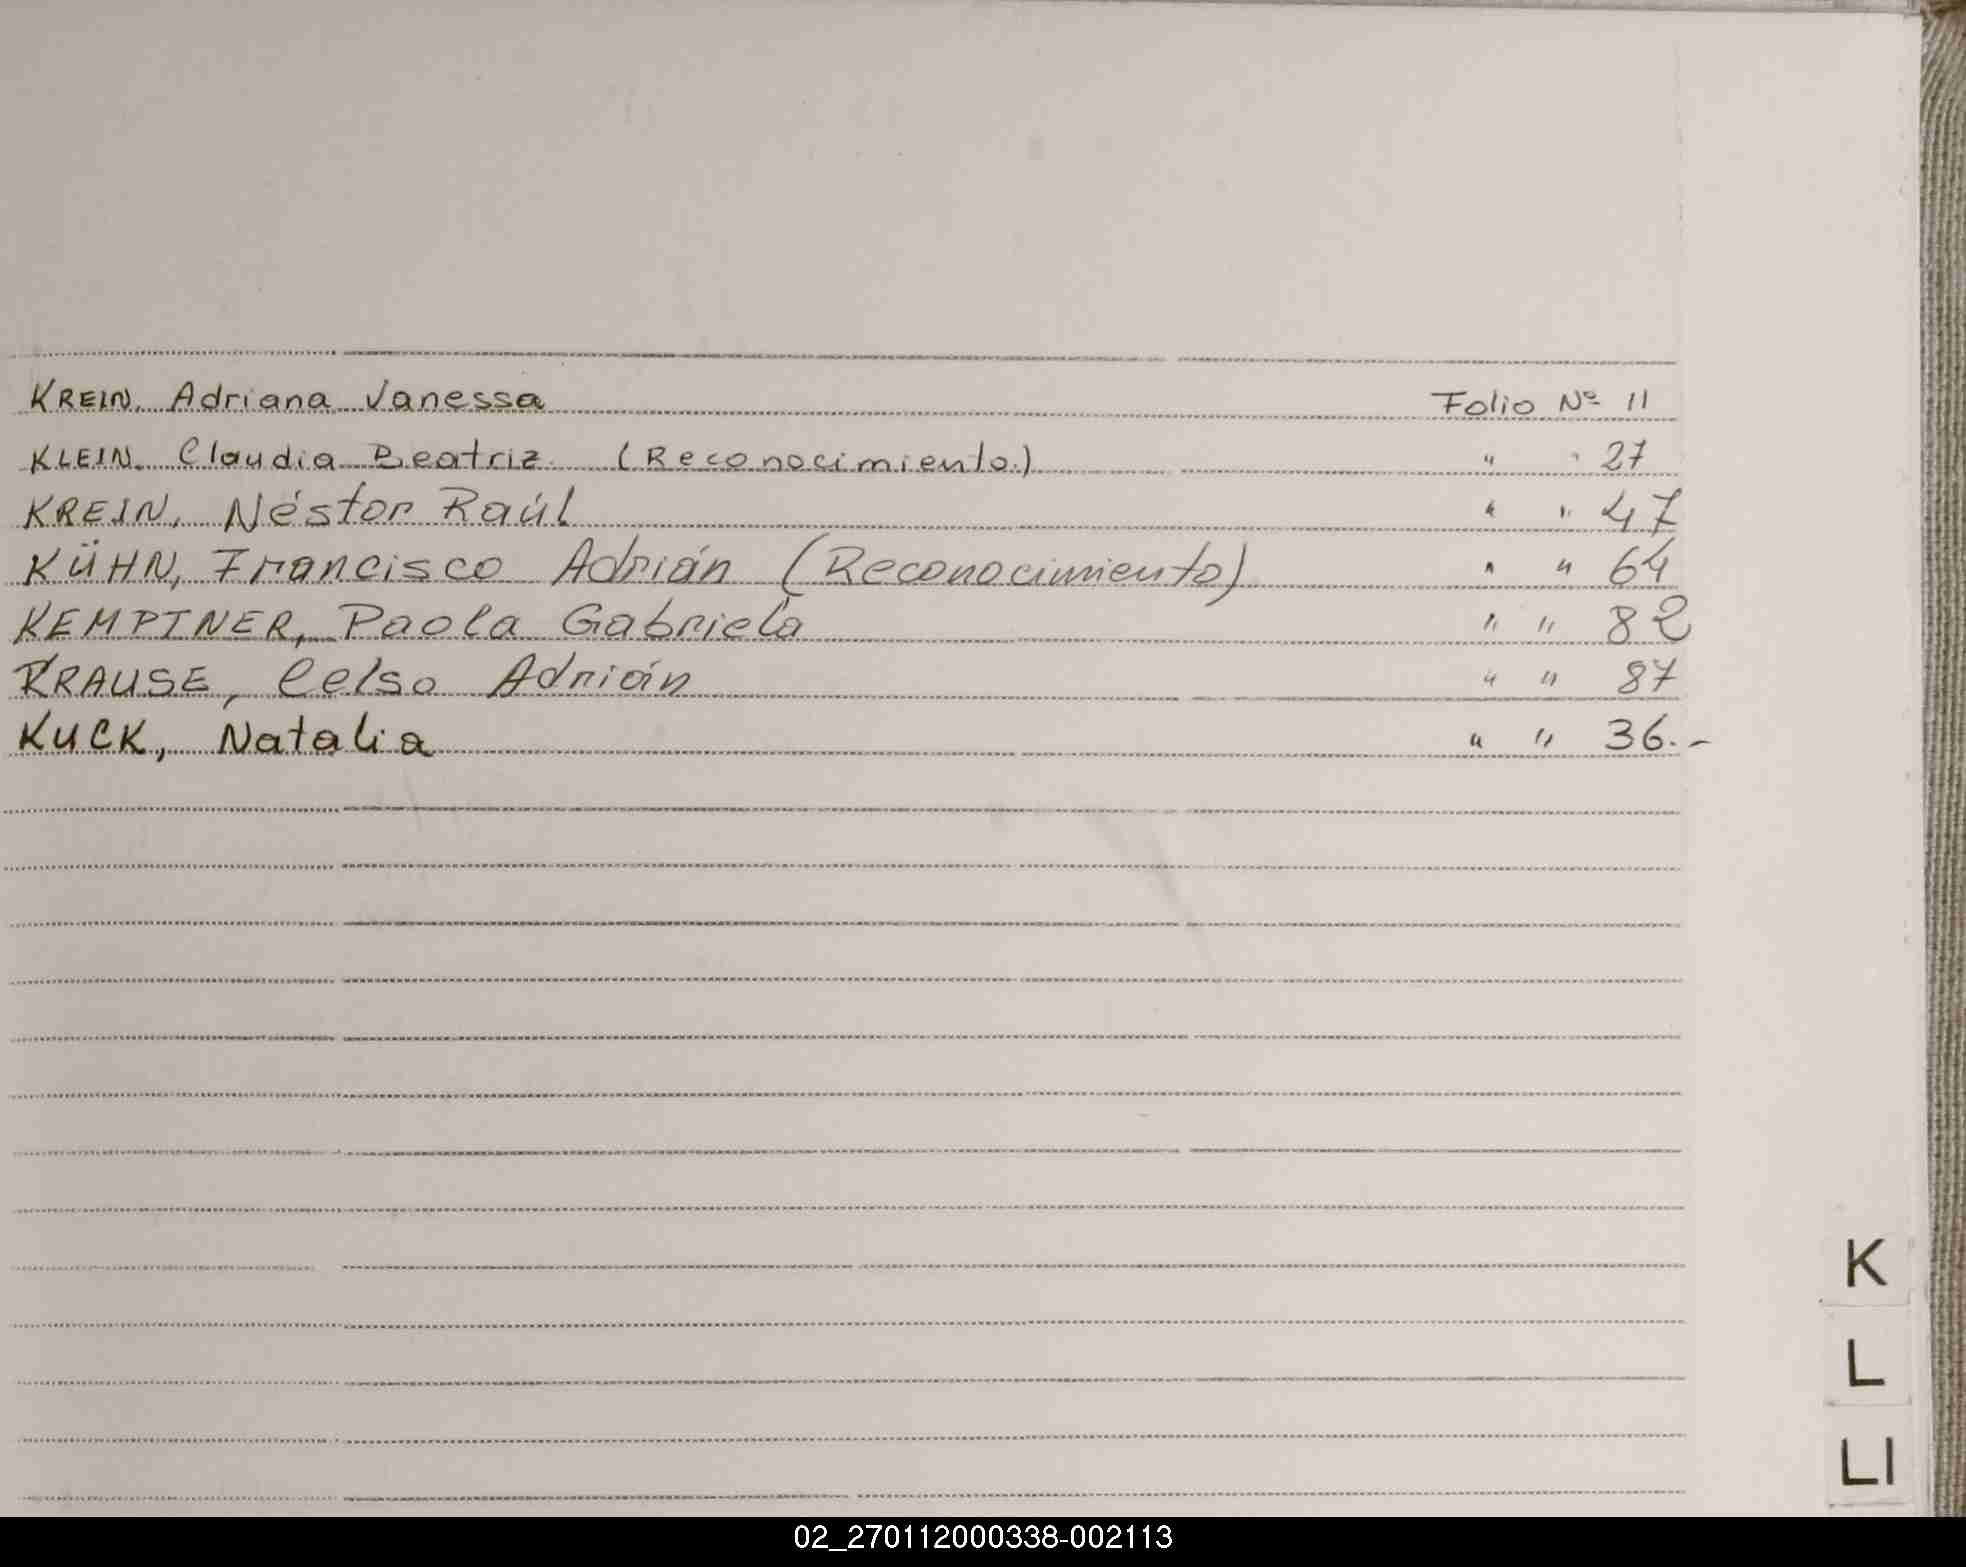 KREIN, Adriana Vanessa Folio Nº 11
KLEIN, Claudia Beatriz (Reconocimiento) " " 27
KREIN, Néstor Raúl " " 47
KÜHN, Francisco Adrián (Reconocimiento) " " 64
KEMPTNER, Paola Gabriela " " 82
KRAUSE, Celso Adrián " " 87
KUCK, Natalia " " 36.-
K
L
Ll
02_270112000338-002113